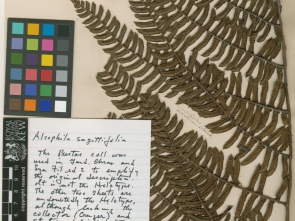 Alsophila sagittifolia
The Duetes coll was
used in Jard. Chron and
Syn Fil ed 2 to amplify
the original description
It is not the Holotype.
The other two sheets are
undoubtedly the Holotype,
although lacking the
collector (Cruger) and
KEW